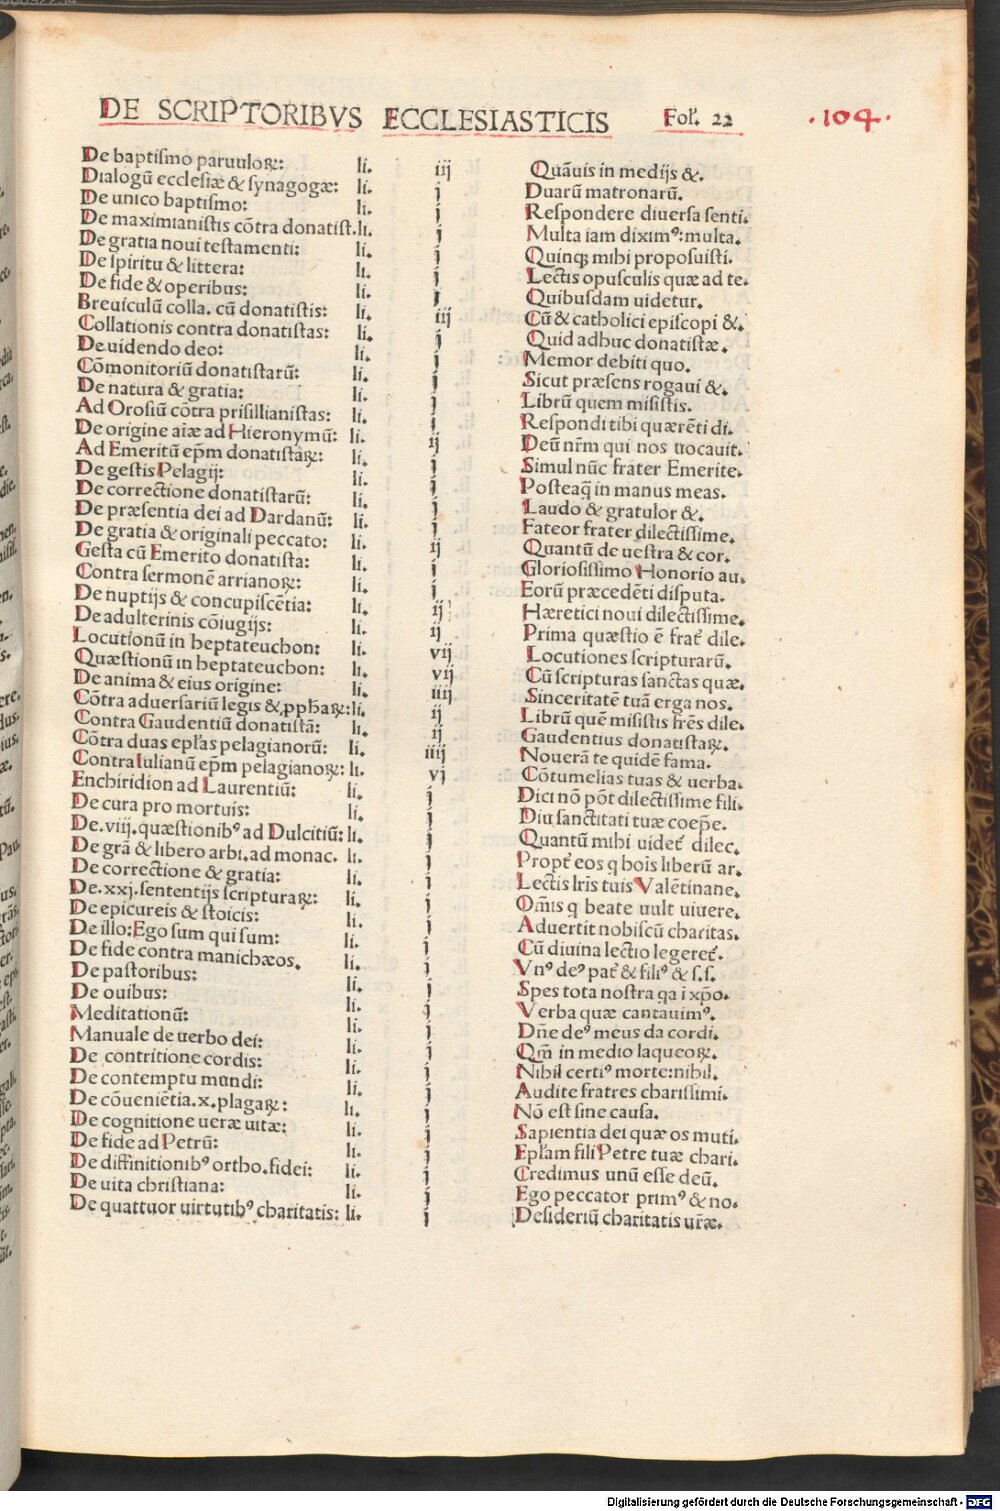 DE SCRIPTORIBVS ECCLESIASTICIS Fol. 22 .104.
De baptismo paruuloꝝ: li. iij Quãuis in medijs &.
Dialogũ ecclesiæ & synagogæ: li. j Duarũ matronarũ.
De unico baptismo: li. j Respondere diuersa senti.
De maximianistis cõtra donatist. li. j Multa iam diximꝰ: multa.
De gratia noui testamenti: li. j Quinqꝫ mihi proposuisti.
De spiritu & littera: li. j Lectis opusculis quæ ad te.
De fide & operibus: li. j Quibusdam uidetur.
Breuiculũ colla. cũ donatistis: li. iij Cũ & catholici episcopi &.
Collationis contra donatistas: li. j Quid adhuc donatistæ.
De uidendo deo: li. j Memor debiti quo.
Cõmonitoriũ donatistarũ: li. j Sicut præsens rogaui &.
De natura & gratia: li. j Librũ quem misistis.
Ad Orosiũ cõtra prisillianistas: li. j Respondi tibi quærẽti di.
De origine aĩæ ad Hieronymũ: li. ij Deũ nr̃m qui nos uocauit.
Ad Emeritũ ep̃m donatistaꝝ: li. j Simul nũc frater Emerite.
De gestis Pelagij: li. j Posteaq̃ in manus meas.
De correctione donatistarũ: li. j Laudo & gratulor &.
De præsentia dei ad Dardanũ: li. j Fateor frater dilectissime.
De gratia & originali peccato: li. ij Quantũ de uestra & cor.
Gesta cũ Emerito donatista: li. j Gloriosissimo Honorio au.
Contra sermonẽ arrianoꝝ: li. j Eorũ præcedẽti disputa.
De nuptijs & concupiscẽtia: li. ij Hæretici noui dilectissime.
De adulterinis cõiugijs: li. ij Prima quæstio ẽ frat̃ dile.
Locutionũ in heptateuchon: li. vij Locutiones scripturarũ.
Quæstionũ in heptateuchon: li. vij Cũ scripturas sanctas quæ.
De anima & eius origine: li. iiij Sinceritatẽ tuã erga nos.
Cõtra aduersariũ legis & ꝓphaꝝ: li. ij Librũ quẽ misistis fr̃es dile.
Contra Gaudentiũ donatistã: li. ij Gaudentius donatistaꝝ.
Cõtra duas ep̃las pelagianorũ: li. iiij Nouerã te quidẽ fama.
Contra Iulianũ ep̃m pelagianoꝝ: li. vj Cõtumelias tuas & uerba.
Enchiridion ad Laurentiũ: li. j Dici nõ põt dilectissime fili.
De cura pro mortuis: li. j Diu sanctitati tuæ coep̃e.
De.viij.quæstionibꝰ ad Dulcitiũ: li. j Quantũ mihi uidet̃ dilec.
De grã & libero arbi. ad monac. li. j Propt̃ eos q hoĩs liberũ ar.
De correctione & gratia: li. j Lectis lr̃is tuis Valẽtinane.
De.xxj.sententijs scripturaꝝ: li. j Om̃is q beate uult uiuere.
De epicureis & stoicis: li. j Aduertit nobiscũ charitas.
De illo: Ego sum qui sum: li. j Cũ diuina lectio legeret̃.
De fide contra manichæos. li. j Vnꝰ deꝰ pat̃ & filiꝰ & s.s.
De pastoribus: li. j Spes tota nostra qa ĩ xp̃o.
De ouibus: li. j Verba quæ cantauimꝰ.
Meditationũ: li. j Dñe deꝰ meus da cordi.
Manuale de uerbo dei: li. j Qm̃ in medio laqueoꝝ.
De contritione cordis: li. j Nihil certiꝰ morte: nihil.
De contemptu mundi: li. j Audite fratres charissimi.
De cõueniẽtia.x.plagaꝝ: li. j Nõ est sine causa.
De cognitione ueræ uitæ: li. j Sapientia dei quæ os muti.
De fide ad Petrũ: li. j Ep̃lam fili Petre tuæ chari.
De diffinitionibꝰ ortho. fidei: li. j Credimus unũ esse deũ.
De uita christiana: li. j Ego peccator primꝰ & no.
De quattuor uirtutibꝰ charitatis: li. j Desideriũ charitatis ur̃æ.
Digitalisierung gefördert durch die Deutsche Forschungsgemeinschaft - DFG